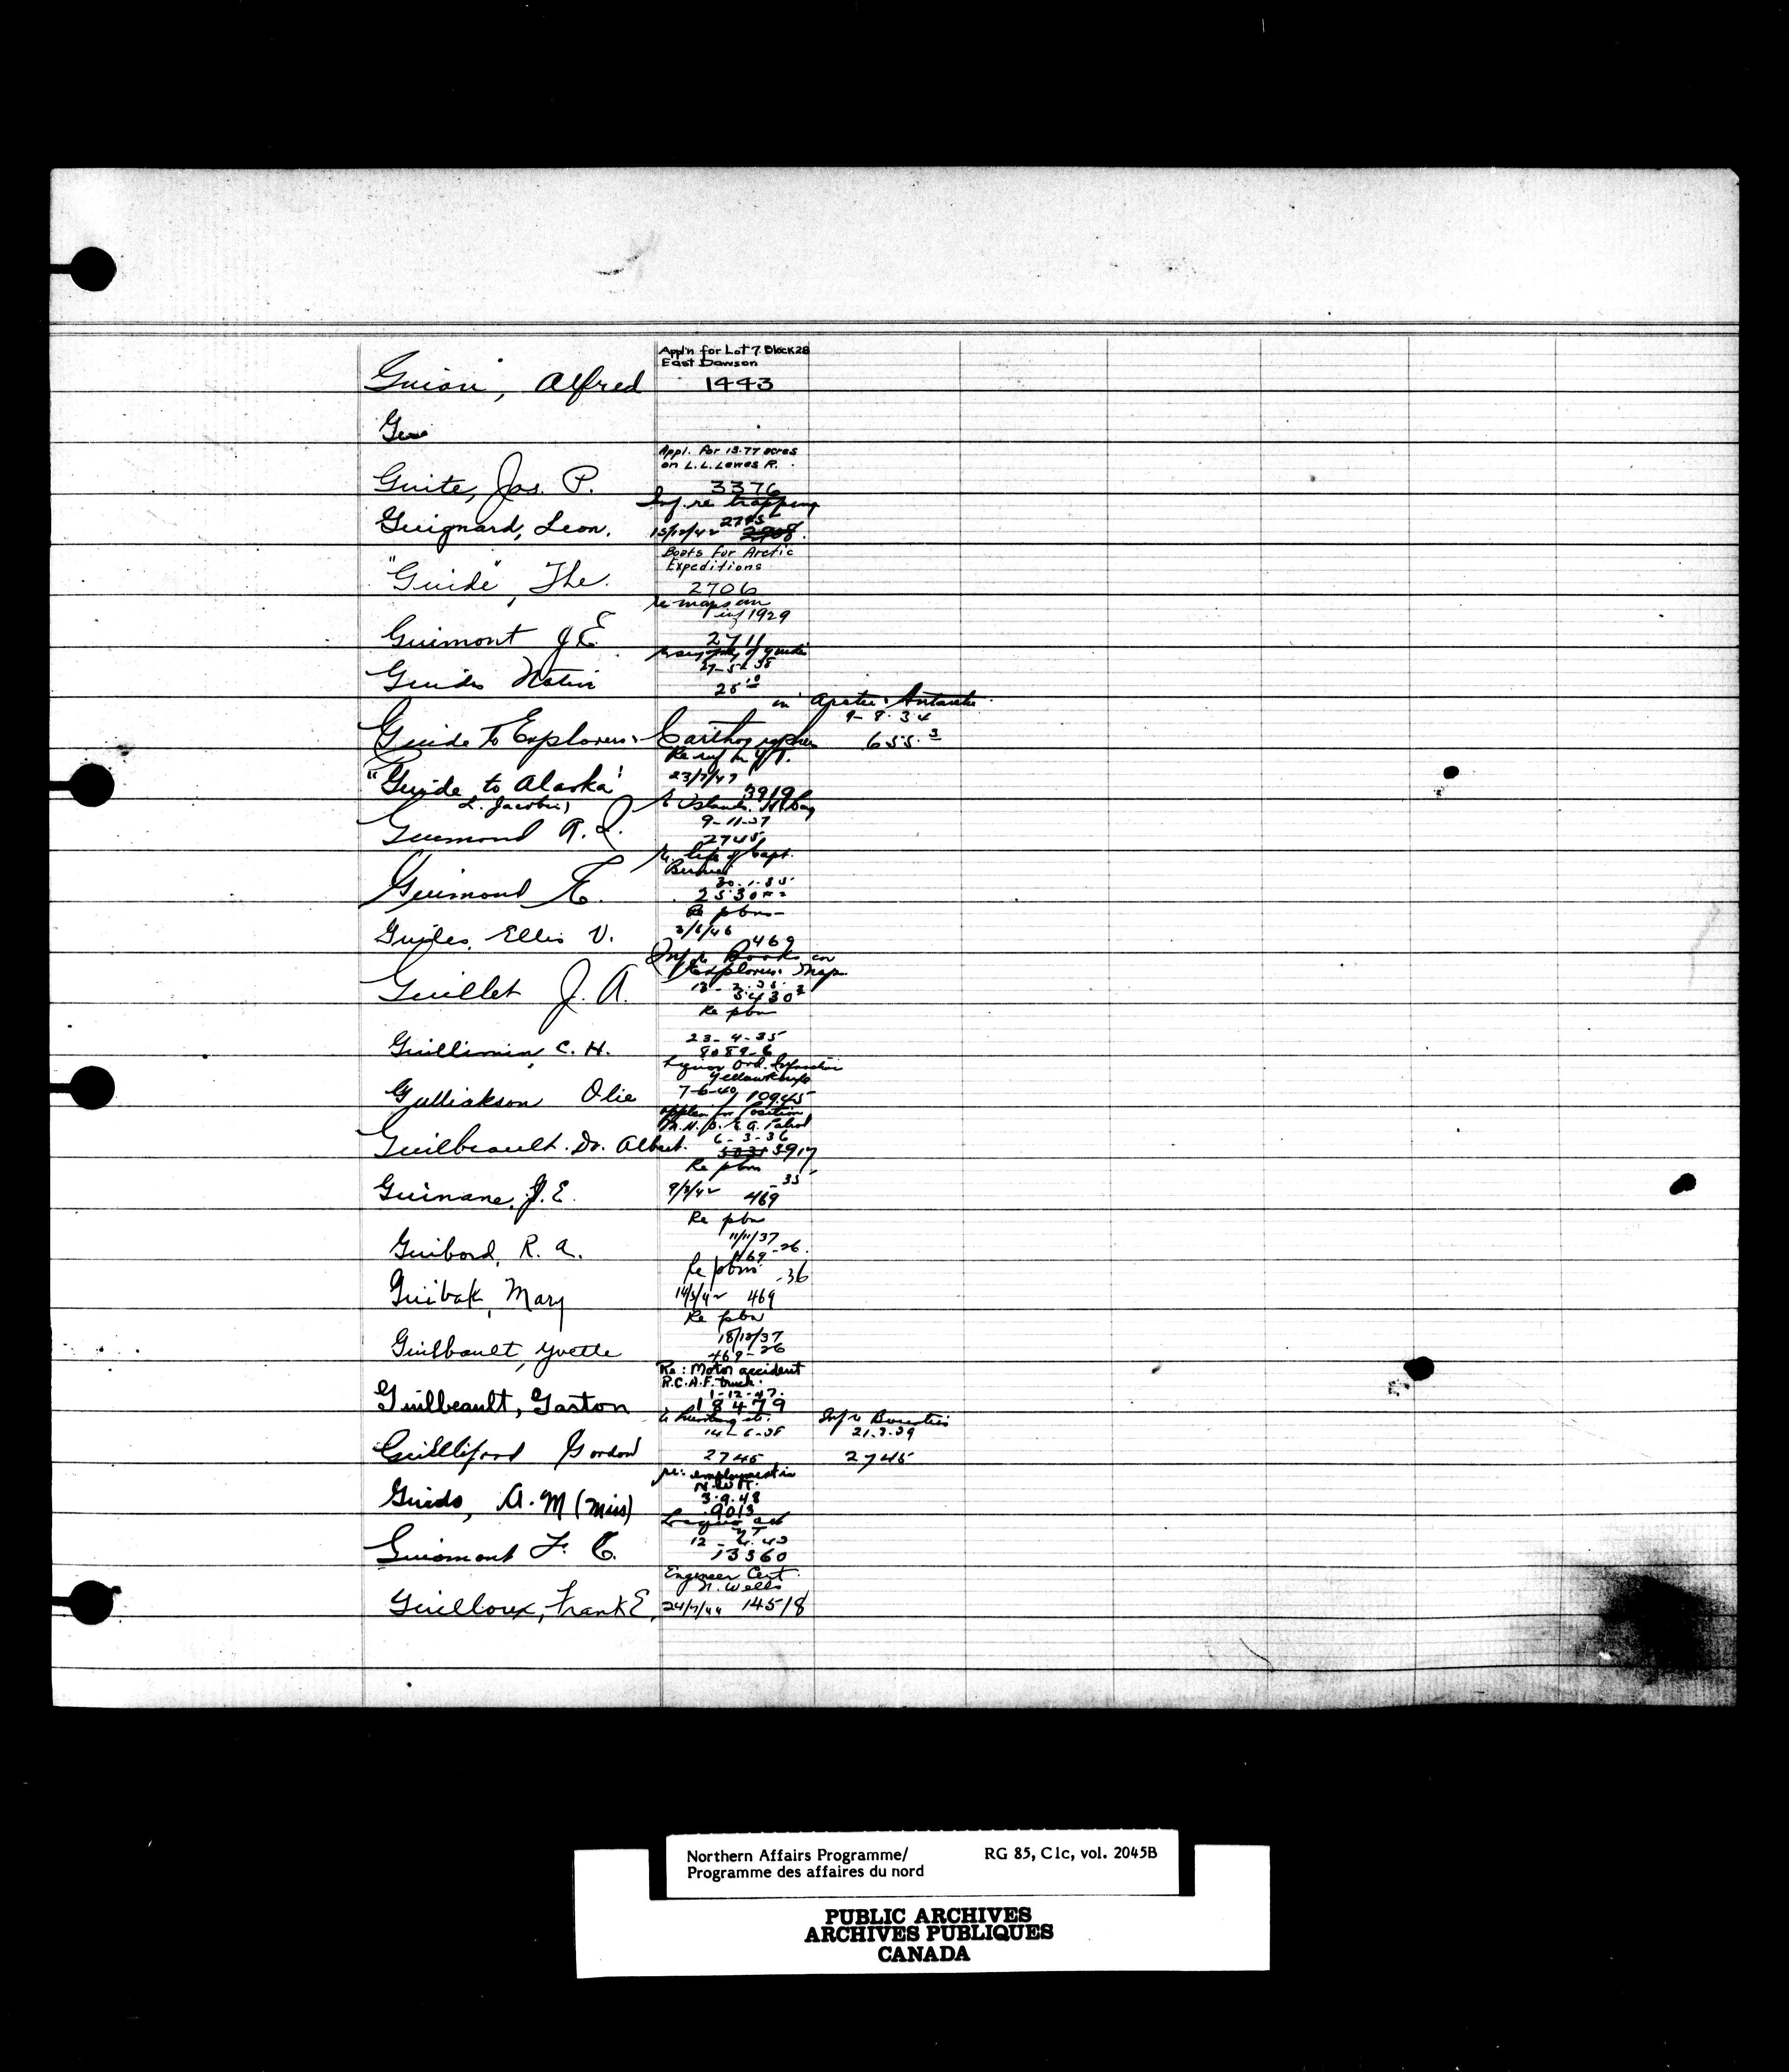 Appl'n for Lot 7. Block 28
East Dawson
Guion, Alfred 1443
Appl. for 13.77 acres
on L.L. Lewes R.
Guite, Jas. P. 3376
Inf. re trapping
2745
Guignard, Leon. 15/12/42
Boats for Arctic
Expeditions
"Guide", The. 2706
re maps
inf 1929
Guimont J E 2711
27-5-38
Guides
in Arctic & Antarctic
9-8-34
Guide to Explorers & Cartographers 655.3
Re inf in Y.T.
"Guide to Alaska" 23/7/47
3919
L. Jacobin
re Islands H Bay
9-11-37
Guimond A. L. 2745
re life of Capt.
Bernier
30-1-35
Guimond E.
Re pbns
Guiles, Ellis V. 3/6/46 469
Inf re Books on
Explorers Map
Guillet J. A. 5430
Re pbn
23-4-35
Guillimin, C. H. 8089-6
Liquor Ord. Infraction
Yellowknife
Gulliakson Olie 7-6-40 10945
Applcn for Position
M.H.O. E.A. Patrol
6-3-36
Guilbeault. Dr. Albert. 5031 5917
Re pbn
-35
Guinane, J. E. 9/3/42 469
Re pbn
11/11/37
Guibord, R. A. 469-26
Re pbns -36
Guibak, Mary 14/5/42 469
Re pbn
18/12/37
Guilbault, Yvette 469-26
Re: Motor accident
R.C.A.F. truck.
1-12-47.
Guilbeault, Gaston 18479
re hunting etc. Inf re Bounties
14-6-38 21.3.39
Guilliford Gordon 2745 2745
re: employment in
N.W.T.
3.9.48
Guido, A. M (Miss) 9013
Guiomont F. C. 13360
Engineer Cert.
N. Wells
Guilloux, Frank E, 24/7/44 14518
Northern Affairs Programme/ RG 85, C1c, vol. 2045B
Programme des affaires du nord
PUBLIC ARCHIVES
ARCHIVES PUBLIQUES
CANADA